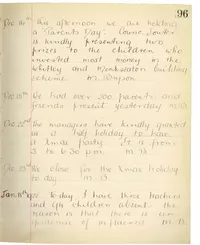 96
Dec 14th This afternoon we are holding
a "Parents' Day".
is kindly presenting two
prizes to the children who
invested most money in the
Whitley and Monkseaton building
scheme.
Dec 15th We had over 300 parents and
friends present yesterday M.B.
Dec 22nd The managers have kindly granted
us a half holiday to have
a Xmas party. It is from
3 to 6.30 p.m. M.B.
Dec 23rd We close for the Xmas holiday
to day. M.B.
Jan 11th To day I have three teachers
and 94 children absent. The
reason is that there is an
epidemic of influenza M.B.